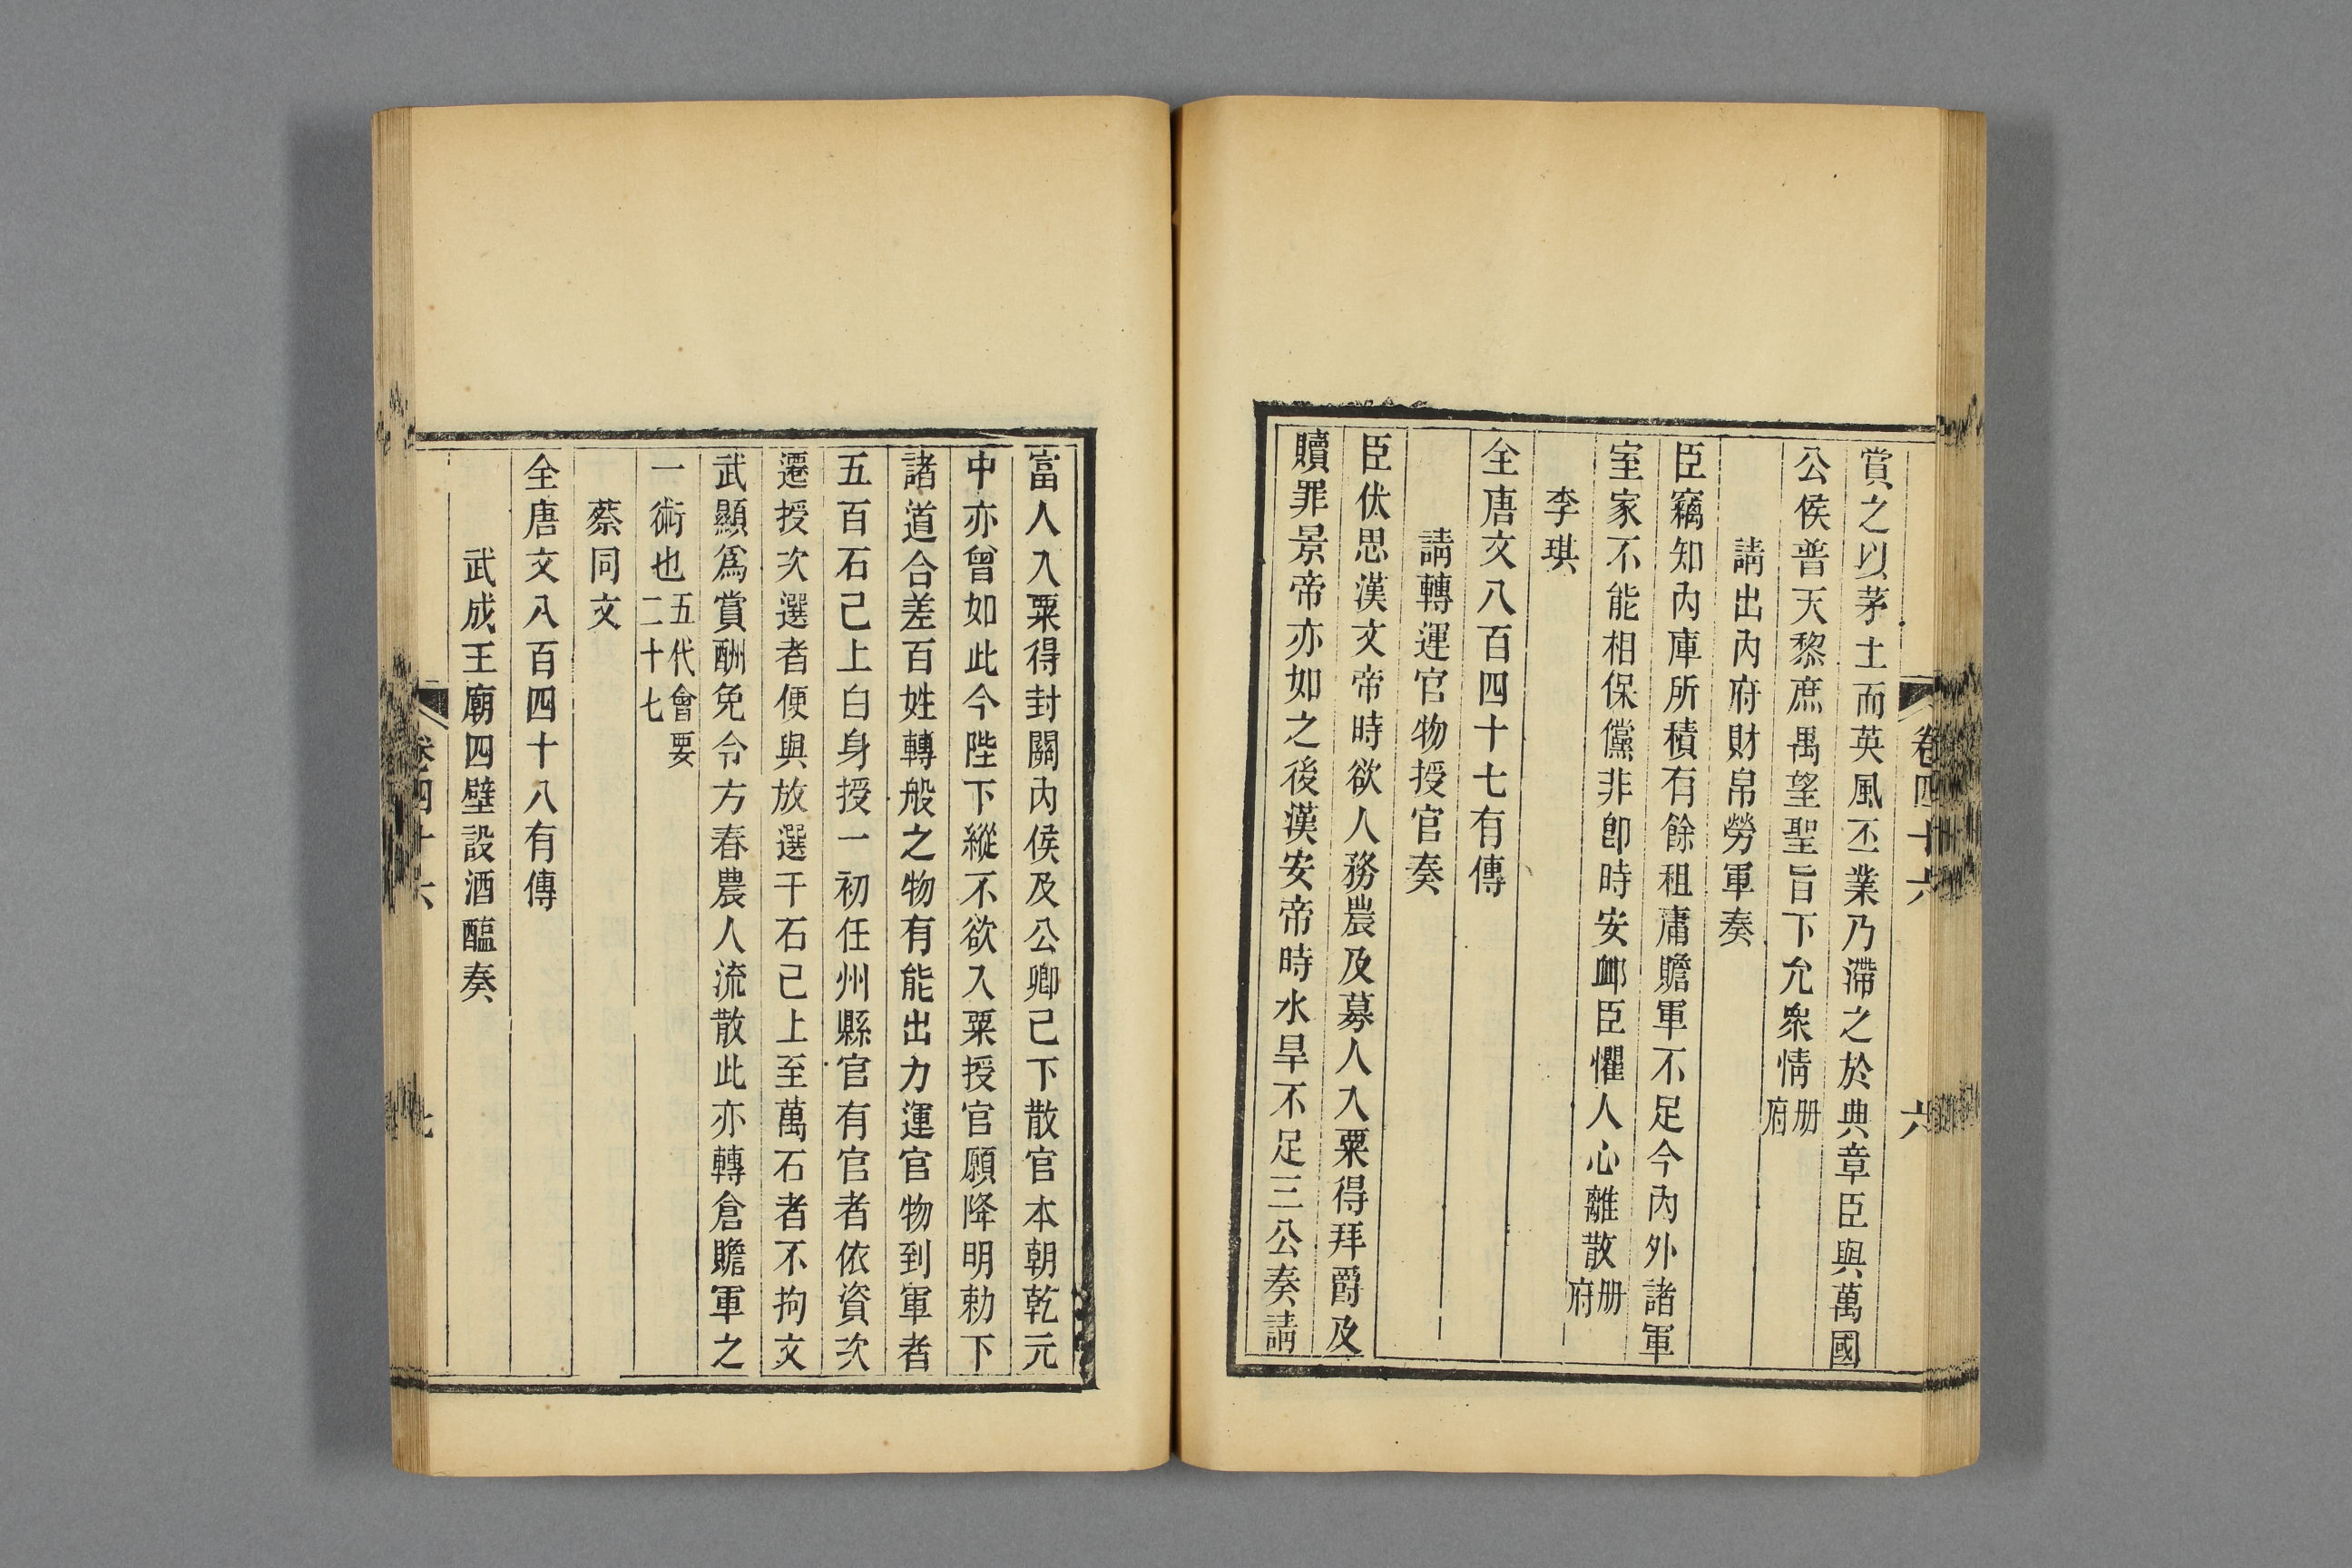 卷四十六
六
賞之以茅土而英風丕業乃滯之於典章臣與萬國
公侯普天黎庶禺望聖旨下允衆情册府
請出內府財帛勞軍奏
臣竊知內庫所積有餘租庸贍軍不足今內外諸軍
室家不能相保儻非卽時安衈臣懼人心離散册府
李琪
全唐文八百四十七有傳
請轉運官物授官奏
臣伏思漢文帝時欲人務農及募人入粟得拜爵及
贖罪景帝亦如之後漢安帝時水旱不足三公奏請
富人入粟得封關內侯及公卿已下散官本朝乾元
中亦曾如此今陛下縱不欲入粟授官願降明勅下
諸道合差百姓轉般之物有能出力運官物到軍者
五百石已上白身授一初任州縣官有官者依資次
遷授次選者便與放選千石已上至萬石者不拘文
武顯爲賞酬免令方春農人流散此亦轉倉贍軍之
一術也五代會要二十七
蔡同文
全唐文八百四十八有傳
武成王廟四壁設酒醢奏
卷四十六
七